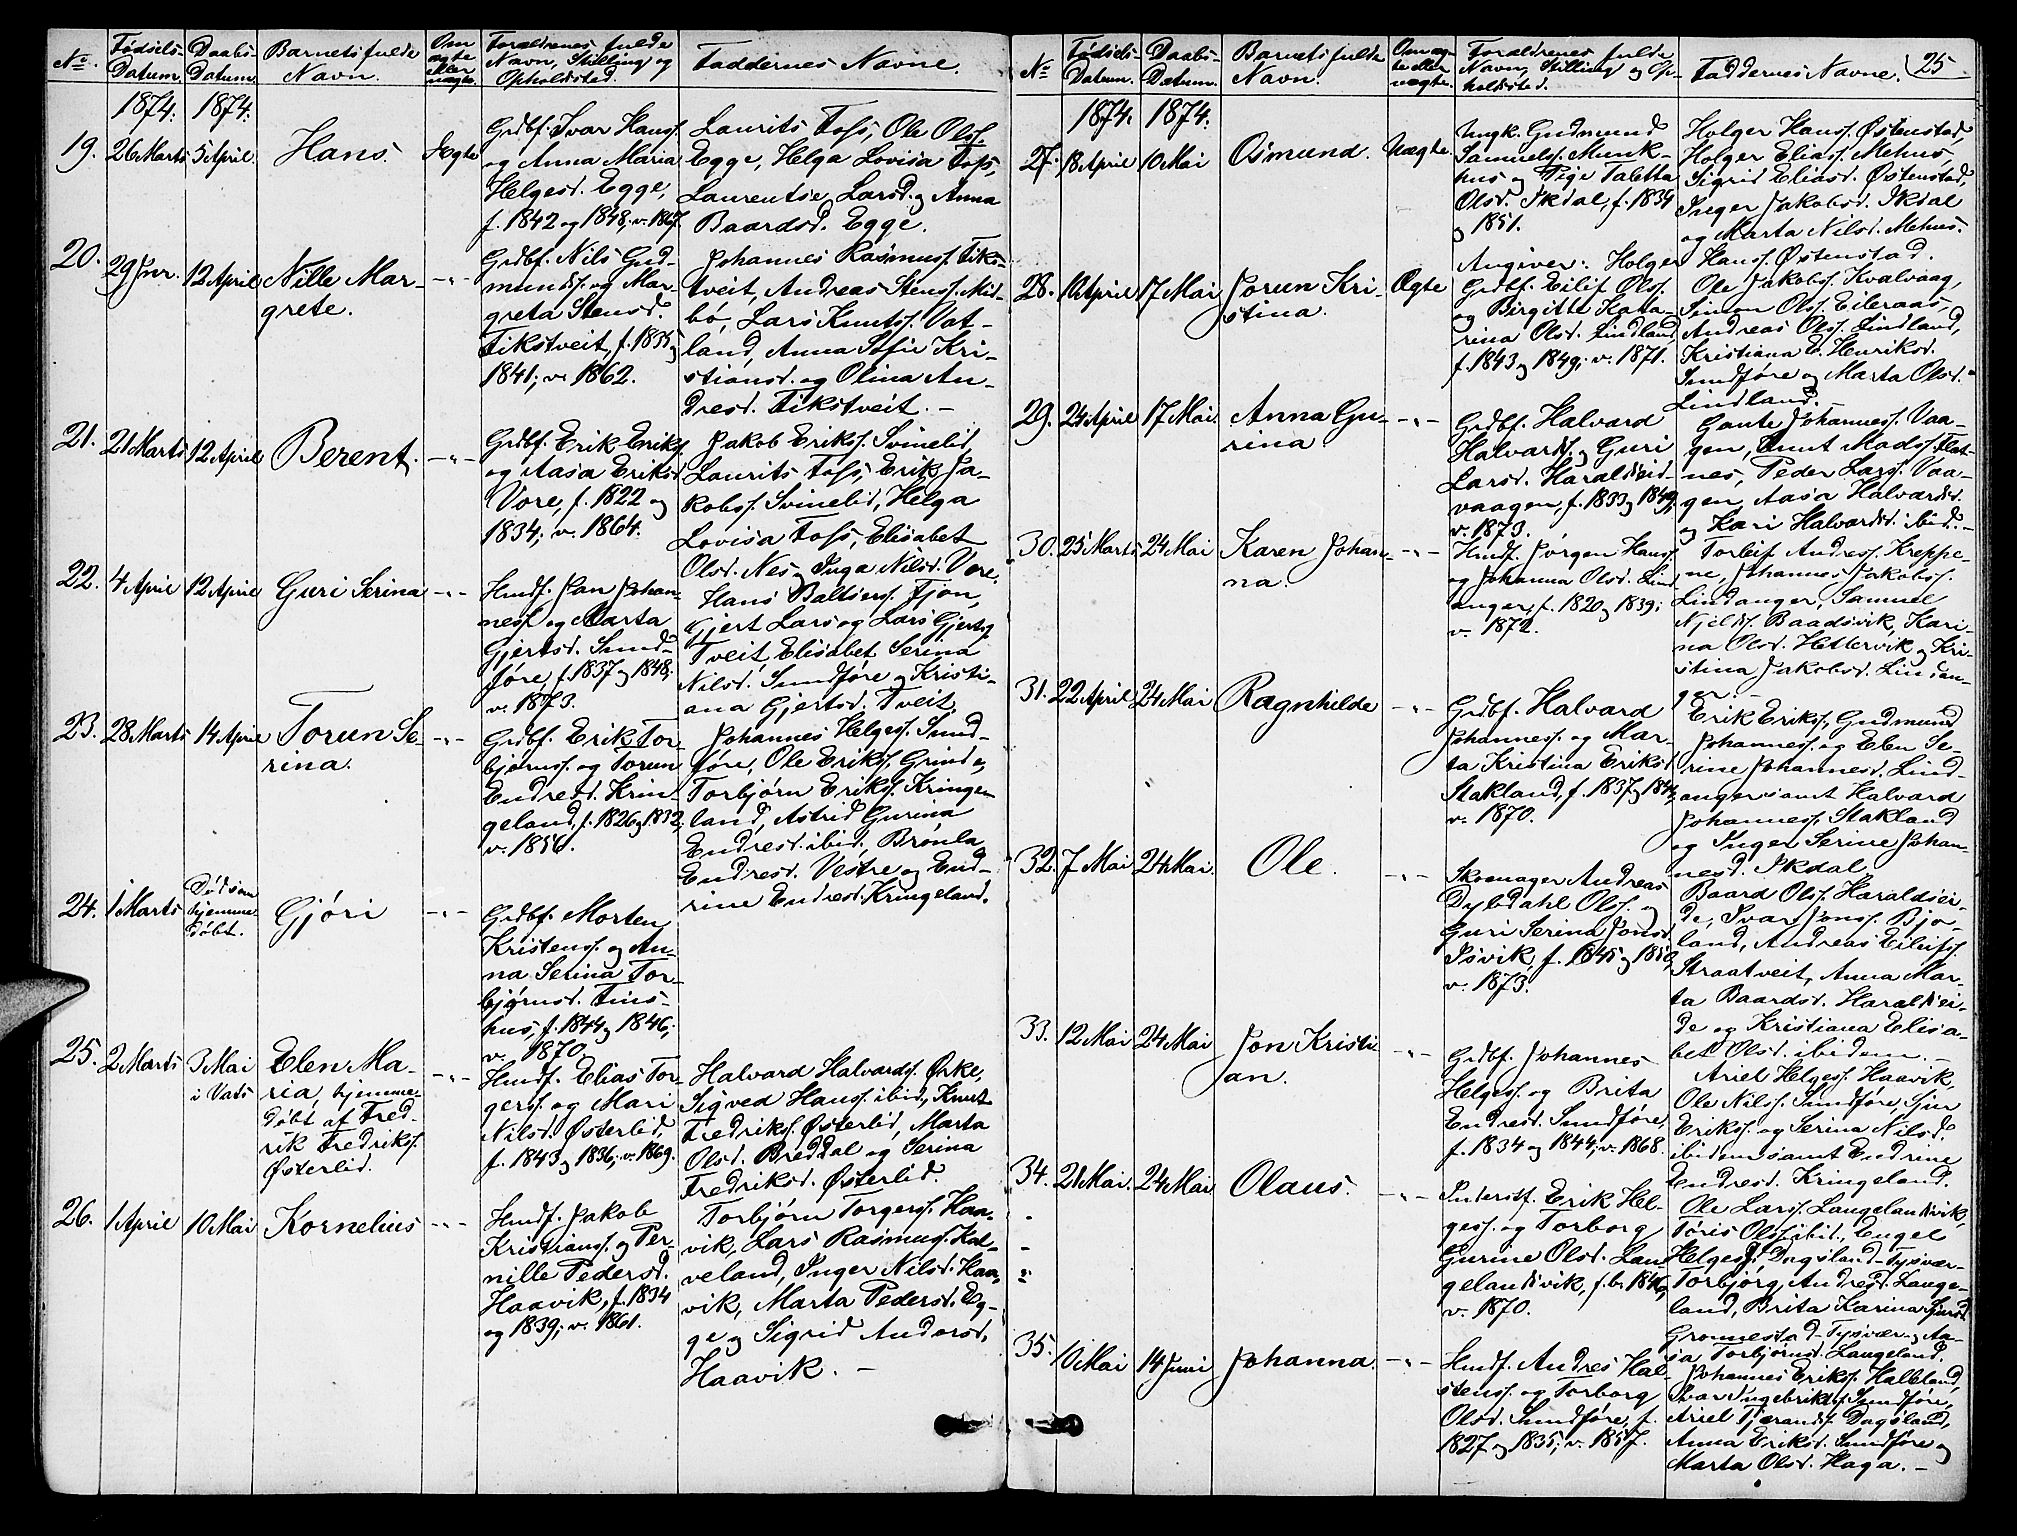 No.
Fødsels-
Datum.
Daabs-
Datum.
Barnets fulde
Navn.
Om
ægte
eller
uægte.
Forældrenes fulde
Navn, Stilling og
Opholdsted.
Faddernes Navne.
1874. 1874.
19. 26 Marts 5 April. Hans. Ægte
Grdbf. Ivar Hanss.
og Anna Maria
Helgesd. Egge,
f. 1842 og 1848; v. 1867.
Laurits Foss, Ole Olss.
Egge, Helga Lovisa Foss,
Laurentse Larsd. og Anna
Baardsd. Egge.
20. 29 Jnr. 12 April Nille Mar-
grete.
Grdbf. Nils Gud-
munds. og Mar-
greta Stensd.
Fikstveit, f. 1835 og
1841; v. 1862.
Johannes Rasmuss. Fiks-
tveit, Andreas Stenss. Mid-
bø, Lars Knuts. Vat-
land, Anna Sofie Kri-
stiansd. og Olina An-
dresd. Fikstveit. –
21. 21 Marts 12 April Berent.
Grdbf. Erik Eriks.
og Aasa Eriksd.
Vore, f. 1822 og
1834; v. 1864.
Jakob Erikss. Svinelid,
Laurits Foss, Erik Ja-
kobss. Svinelid, Helga
Lovisa Foss, Elisabet
Olsd. Nes og Inga Nilsd. Vore.
22. 4 April 12 April Guri Serina
Hmdf. Jan Johan-
ness. og Marta
Gjertsd. Sund-
føre, f. 1837 og 1848;
v. 1873.
Hans Baltsers. Fjon,
Gjert Lars og Lars Gjerts.
Tveit, Elisabet Serina
Nilsd. Sundføre og Kristi-
ana Gjertsd. Tveit.
23. 28 Marts 14 April Torun Se-
rina.
Grdbf. Erik Tor-
bjørns. og Torun
Endresd. Krin-
geland, f. 1826 og 1832;
v. 1856.
Johannes Helgess. Sund-
føre, Ole Erikss. Grinde,
Torbjørn Erikss. Kringe-
land, Astrid Gurina
Endresd. ibid., Brønla
Endresd. Vestre og End-
rine Endresd. Kringeland.
24. 1 Marts
Død som
hjemme-
døbt.
Gjøri
Grdbf. Morten
Kristens. og An-
na Serina Tor-
bjørnsd. Fins-
hus, f. 1844 og 1846;
v. 1870.
25. 2 Marts 3 Mai
i Vats
Elen Ma-
ria, hjemme-
døbt af Fred-
rik Fredriks.
Østerlid.
Hmdf. Elias Tor-
gerss. og Mari
Nilsd. Østerlid,
f. 1843 og 1836; v. 1869.
Halvard Halvards. Ørke,
Sigved Hanss. ibid., Knut
Fredriks. Østerlid, Marta
Olsd. Breddal og Serina
Fredriksd. Østerlid.
26. 1 April 10 Mai Kornelius
Hmdf. Jakob
Kristians. og Per-
nille Pedersd.
Haavik, f. 1834
og 1839; v. 1861.
Torbjørn Torgerss. Haa-
vik, Lars Rasmuss. Kal-
veland, Inger Nilsd. Haa-
vik, Marta Pedersd. Eg-
ge og Sigrid Andersd.
Haavik. –
No.
Fødsels-
Datum.
Daabs-
Datum.
Barnets fulde
Navn.
Om æg-
te eller
uægte.
Forældrenes fulde
Navn, Stilling og Op-
holdsted.
Faddernes Navne.
25.
1874. 1874.
27. 18 April 10 Mai Osmund. Uægte
Ungk. Gudmund
Samuels. Munk-
hus og Pige Taletta
Olsd. Skdal, f. 1834
og 1851.
Holger Hanss. Østenstad,
Holger Eliass. Mehus,
Sigrid Eliasd. Østenstad,
Inger Jakobsd. Skdal
og Marta Nilsd. Mehus.
Angiver: Holger Hanss. Østenstad.
28. April 17 Mai Jorun Kri-
stina.
Ægte
Grdbf. Eilif Olss.
og Birgitte Kata-
rina Olsd. Lindland,
f. 1843 og 1849; v. 1871.
Ole Jakobs. Kvalvaag,
Simon Olss. Eileraas,
Andreas Olss. Lindland,
Kristiana E. Henriksd.
Sundføre og Marta Olsd.
Lindland. –
29. 24 April 17 Mai. Anna Gu-
rina
Grdbf. Halvard
Halvards. og Guri
Larsd. Haraldseid-
vaagen, f. 1833 og 1849;
v. 1873.
Gaute Johanness. Vaa-
gen, Knut Madss. Flat-
nes, Peder Larss. Vaa-
gen, Aasa Halvardsd.
og Kari Halvardsd. ibid. –
30. 25 Marts 24 Mai Karen Johan-
na.
Hmdf. Jørgen Hanss.
og Johanna Olsd. Lind-
anger, f. 1820 og 1839;
v. 1872.
Torleif Andress. Kreppe-
ne, Johannes Jakobs.
Lindanger, Samuel
Njelds. Baadsvik, Kari-
na Olsd. Hettervik og Kri-
stina Jakobsd. Lindan-
ger. –
31. 22 April 24 Mai Ragnhilde
Grdbf. Halvard
Johanness. og Mar-
ta Kristina Eriksd.
Stakland, f. 1837 og 1844;
v. 1870.
Erik Erikss., Gudmund
Johanness. og Elen Se-
rine Johannesd. Lind-
anger samt Halvard
Johanness. Stakland
og Inger Serine Johan-
nesd. Skdal.
32. 7 Mai 24 Mai. Ole.
Skomager Andreas
Dybdahl Olss. og
Guri Serina Jonsd.
Isvik, f. 1845 og 1850;
v. 1873.
Baard Olss. Haraldsei-
de, Ivar Jonss. Bjo-
land, Andreas Eilifs.
Straatveit, Anna Mar-
ta Baardsd. Haraldsei-
de og Kristiana Elisa-
bet Olsd. ibidem. –
33. 12 Mai 24 Mai Jon Kristi
an.
Grdbf. Johannes
Helgess. og Brita
Endresd. Sundføre,
f. 1834 og 1844; v. 1868.
Ariel Helgess. Haavik,
Ole Nilss. Sundføre, Sjur
Erikss. og Serina Nilsd.
ibidem samt Endrine
Endresd. Kringeland.
34. 21 Mai. 24 Mai Olaus.
Inderstf. Erik Hel-
gess. og Torborg
Gurine Olsd. Lan-
gelandsvik, f. b. 1846;
v. 1870.
Ole Larss. Langelandsvik,
Tøris Olss. ibid., Engel
Helgess. Dagsland–Tysvær–
Torbjørg Andresd. Lange-
land, Brita Karina Sjursd.
Grønnestad–Tysvær og Aa-
sa Torbjørnsd. Langeland.
35. 10 Mai 14 Juni Johanna.
Hmdf. Andres Hal-
stenss. og Torborg
Olsd. Sundføre, f.
1827 og 1835; v. 1857.
Johannes Erikss. Halleland,
Ivar Ingebrikts. Sundføre,
Ariel Tjerands. Dagsland,
Anna Eriksd. Sundføre og
Marta Olsd. Haga. –